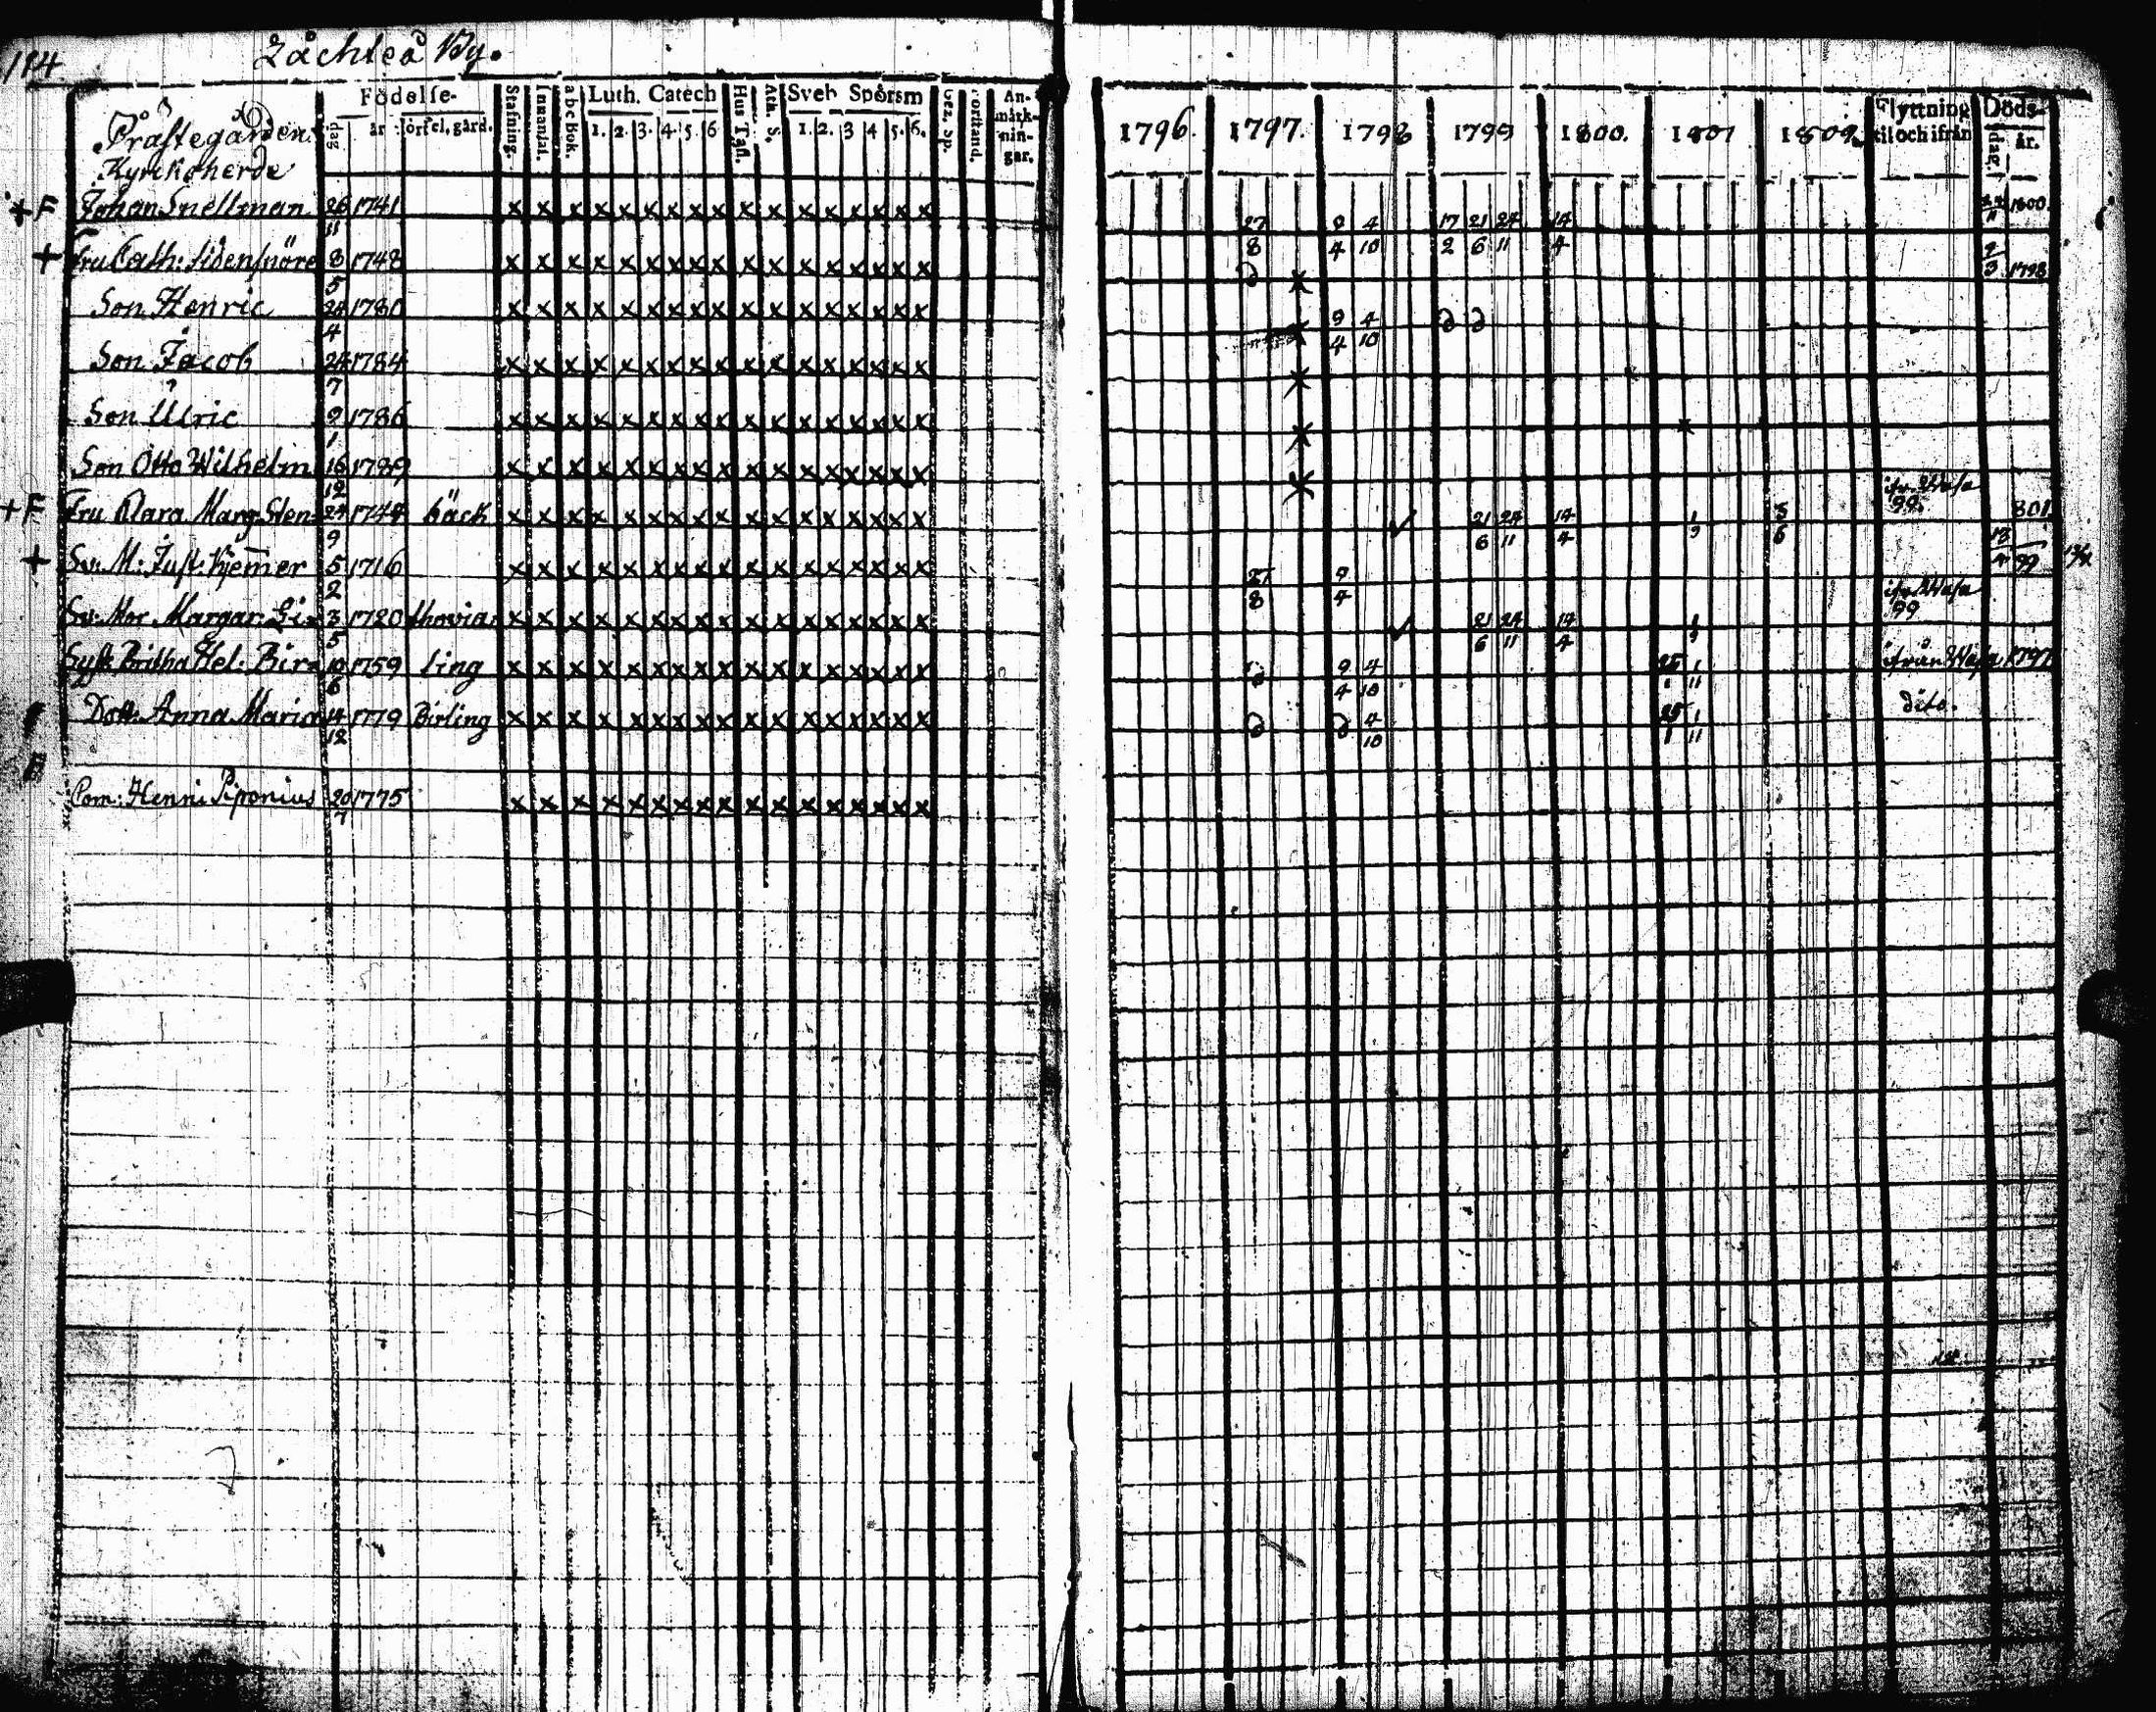 184 Låchteå By.
Födelse- Luth. Catech Sveb Spörsm
dag år Stafning. Innandal. abc Bok. 1. 2. 3. 4. 5 6 Hus Tafl. Ath. S. 1. 2. 3 4 5. 6. An-märk-nin-gar.
1796. 1797. 1798 1799 1800. 1801 1802 Flyttning til och ifrån Döds- dag. år.
Pråstegården.
Kyrckoherde
+F Johan Snellman 26/11 1741 x x x x x x x x x x x x x x x x x 27/8 9/4 4/10 17/2 21/6 24/11 14/4 1800.
+ Fru Cath: Sidensnöre 8/5 1748 x x x x x x x x x x x x x x x x x 1798
Son Henric 24/4 1780 x x x x x x x x x x x x x x x x x 9/4 4/10
Son Jacob 24/7 1784 x x x x x x x x x x x x x x x x x
Son Ulric 9/1 1786 x x x x x x x x x x x x x x x x x
Son Otto Wilhelm 16/12 1789 x x x x x x x x x x x x x x x x x
+F Fru Clara Marg. Sten- 24/9 bäck x x x x x x x x x x x x x x x x x 21/6 24/11 14/4 ifr. Wasa 99. 801
+ Sv: M: Just: 5/2 1716 x x x x x x x x x x x x x x x x x 27/8 9/4 99
Sv: Mor Margar. Li- 3/5 1720 thovia x x x x x x x x x x x x x x x x x 21/6 24/11 14/4 ifr. Wasa 99
Syst. Britha Hel: Bir- 10/6 1759 ling x x x x x x x x x x x x x x x x x 9/4 4/10 ifrån Wasa 1797
Dott. Anna Maria 14/12 1779 Birling x x x x x x x x x x x x x x x x x 4/10 dito.
Com: Henri Piponius 20/7 1775 x x x x x x x x x x x x x x x x x